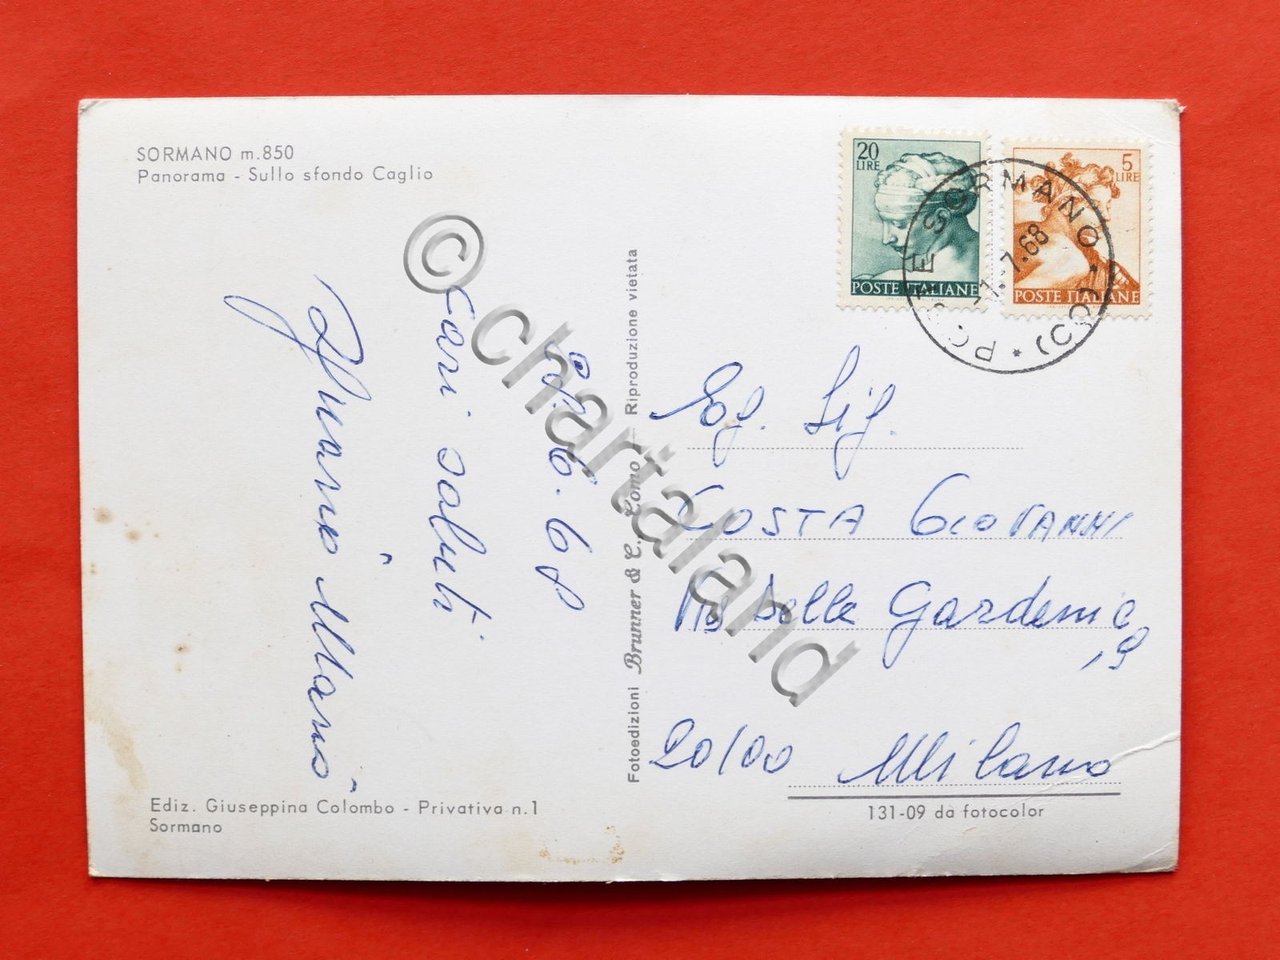 SORMANO m.850
Panorama - Sullo sfondo Caglio
20 LIRE
POSTE ITALIANE
5 LIRE
POSTE ITALIANE
POSTE SORMANO (CO)
-1.7.68
6.68
Cari saluti
Mario
Fotoedizioni Brunner & C. Como - Riproduzione vietata
Sig.
COSTA GIOVANNI
Via delle Gardenie
, 9
20100 Milano
Ediz. Giuseppina Colombo - Privativa n.1
Sormano
131-09 da fotocolor
© chartaland